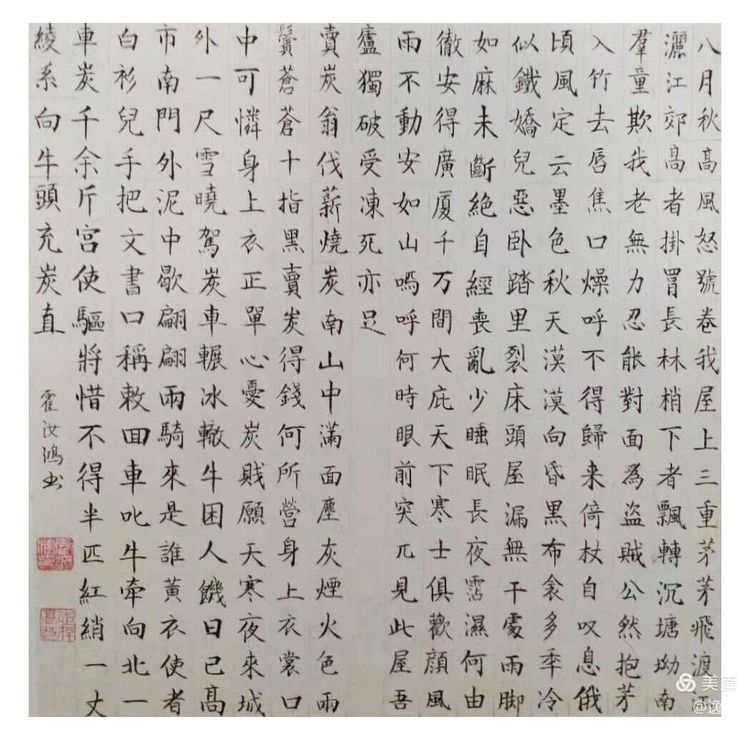 八月秋高風怒號卷我屋上三重茅茅飛渡江
灑江郊高者掛罥長林梢下者飄轉沉塘坳南
羣童欺我老無力忍能對面為盜賊公然抱茅
入竹去唇焦口燥呼不得歸来倚杖自叹息俄
頃風定云墨色秋天漠漠向昏黑布衾多年冷
似鐵嬌兒惡卧踏里裂床頭屋漏無干處雨脚
如麻未斷絕自經喪亂少睡眠長夜霑濕何由
徹安得廣厦千万間大庇天下寒士俱歡顏風
雨不動安如山嗚呼何時眼前突兀見此屋吾
廬獨破受凍死亦足
賣炭翁伐薪燒炭南山中滿面塵灰煙火色兩
鬢蒼蒼十指黑賣炭得錢何所營身上衣裳口
中可憐身上衣正單心憂炭賤願天寒夜來城
外一尺雪曉駕炭車輾冰轍牛困人饑日已高
市南門外泥中歇翩翩兩騎來是誰黃衣使者
白衫兒手把文書口稱敕回車叱牛牽向北一
車炭千余斤宮使驅將惜不得半匹紅綃一丈
綾系向牛頭充炭直
霍汝鴻书
美篇
@逸